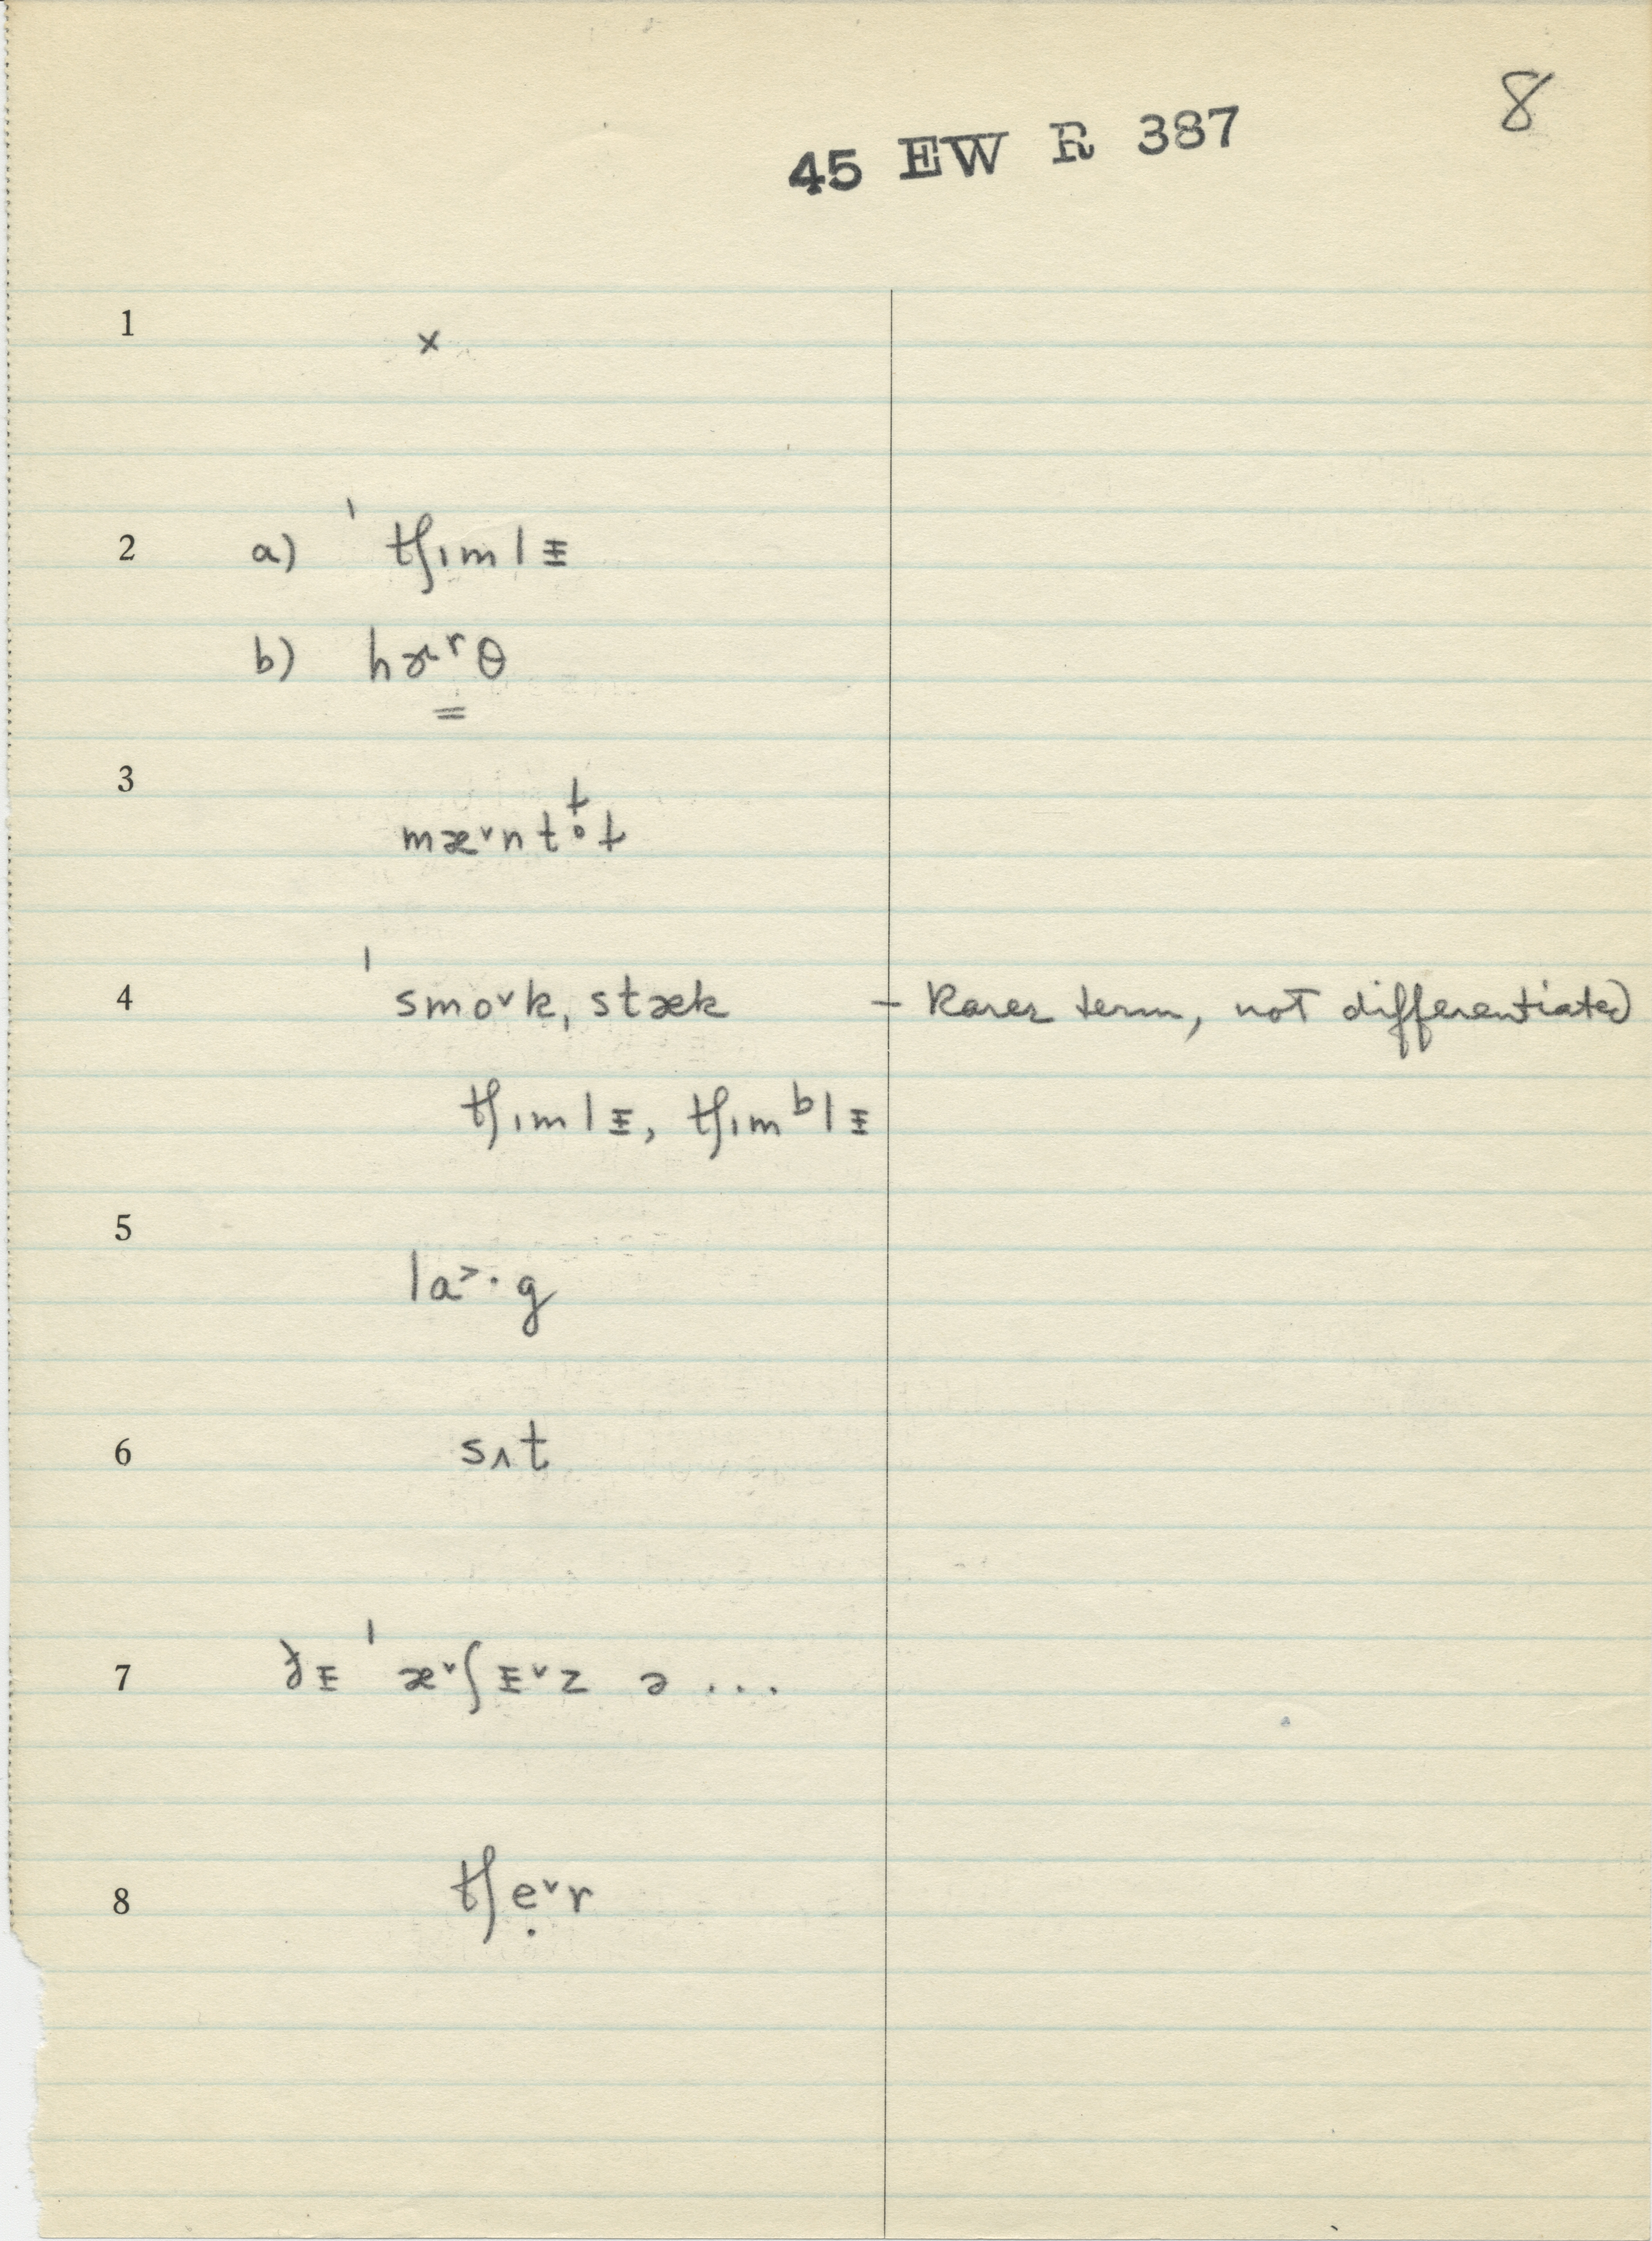 8
45 EW R 387
1 ×
2 a) ˈtʃɪmlᵻ
b) hɚʳθ
=
3 mæ˅ntɫ̥ɫ
4 ˈsmo˅k, stæk – Rarer term, not differentiated
tʃɪmlᵻ, tʃɪmᵇlᵻ
5 la˃·g
6 sʌt
7 ðᵻ ˈæ˅ʃᵻ˅z ə ...
8 tʃẹ˅r